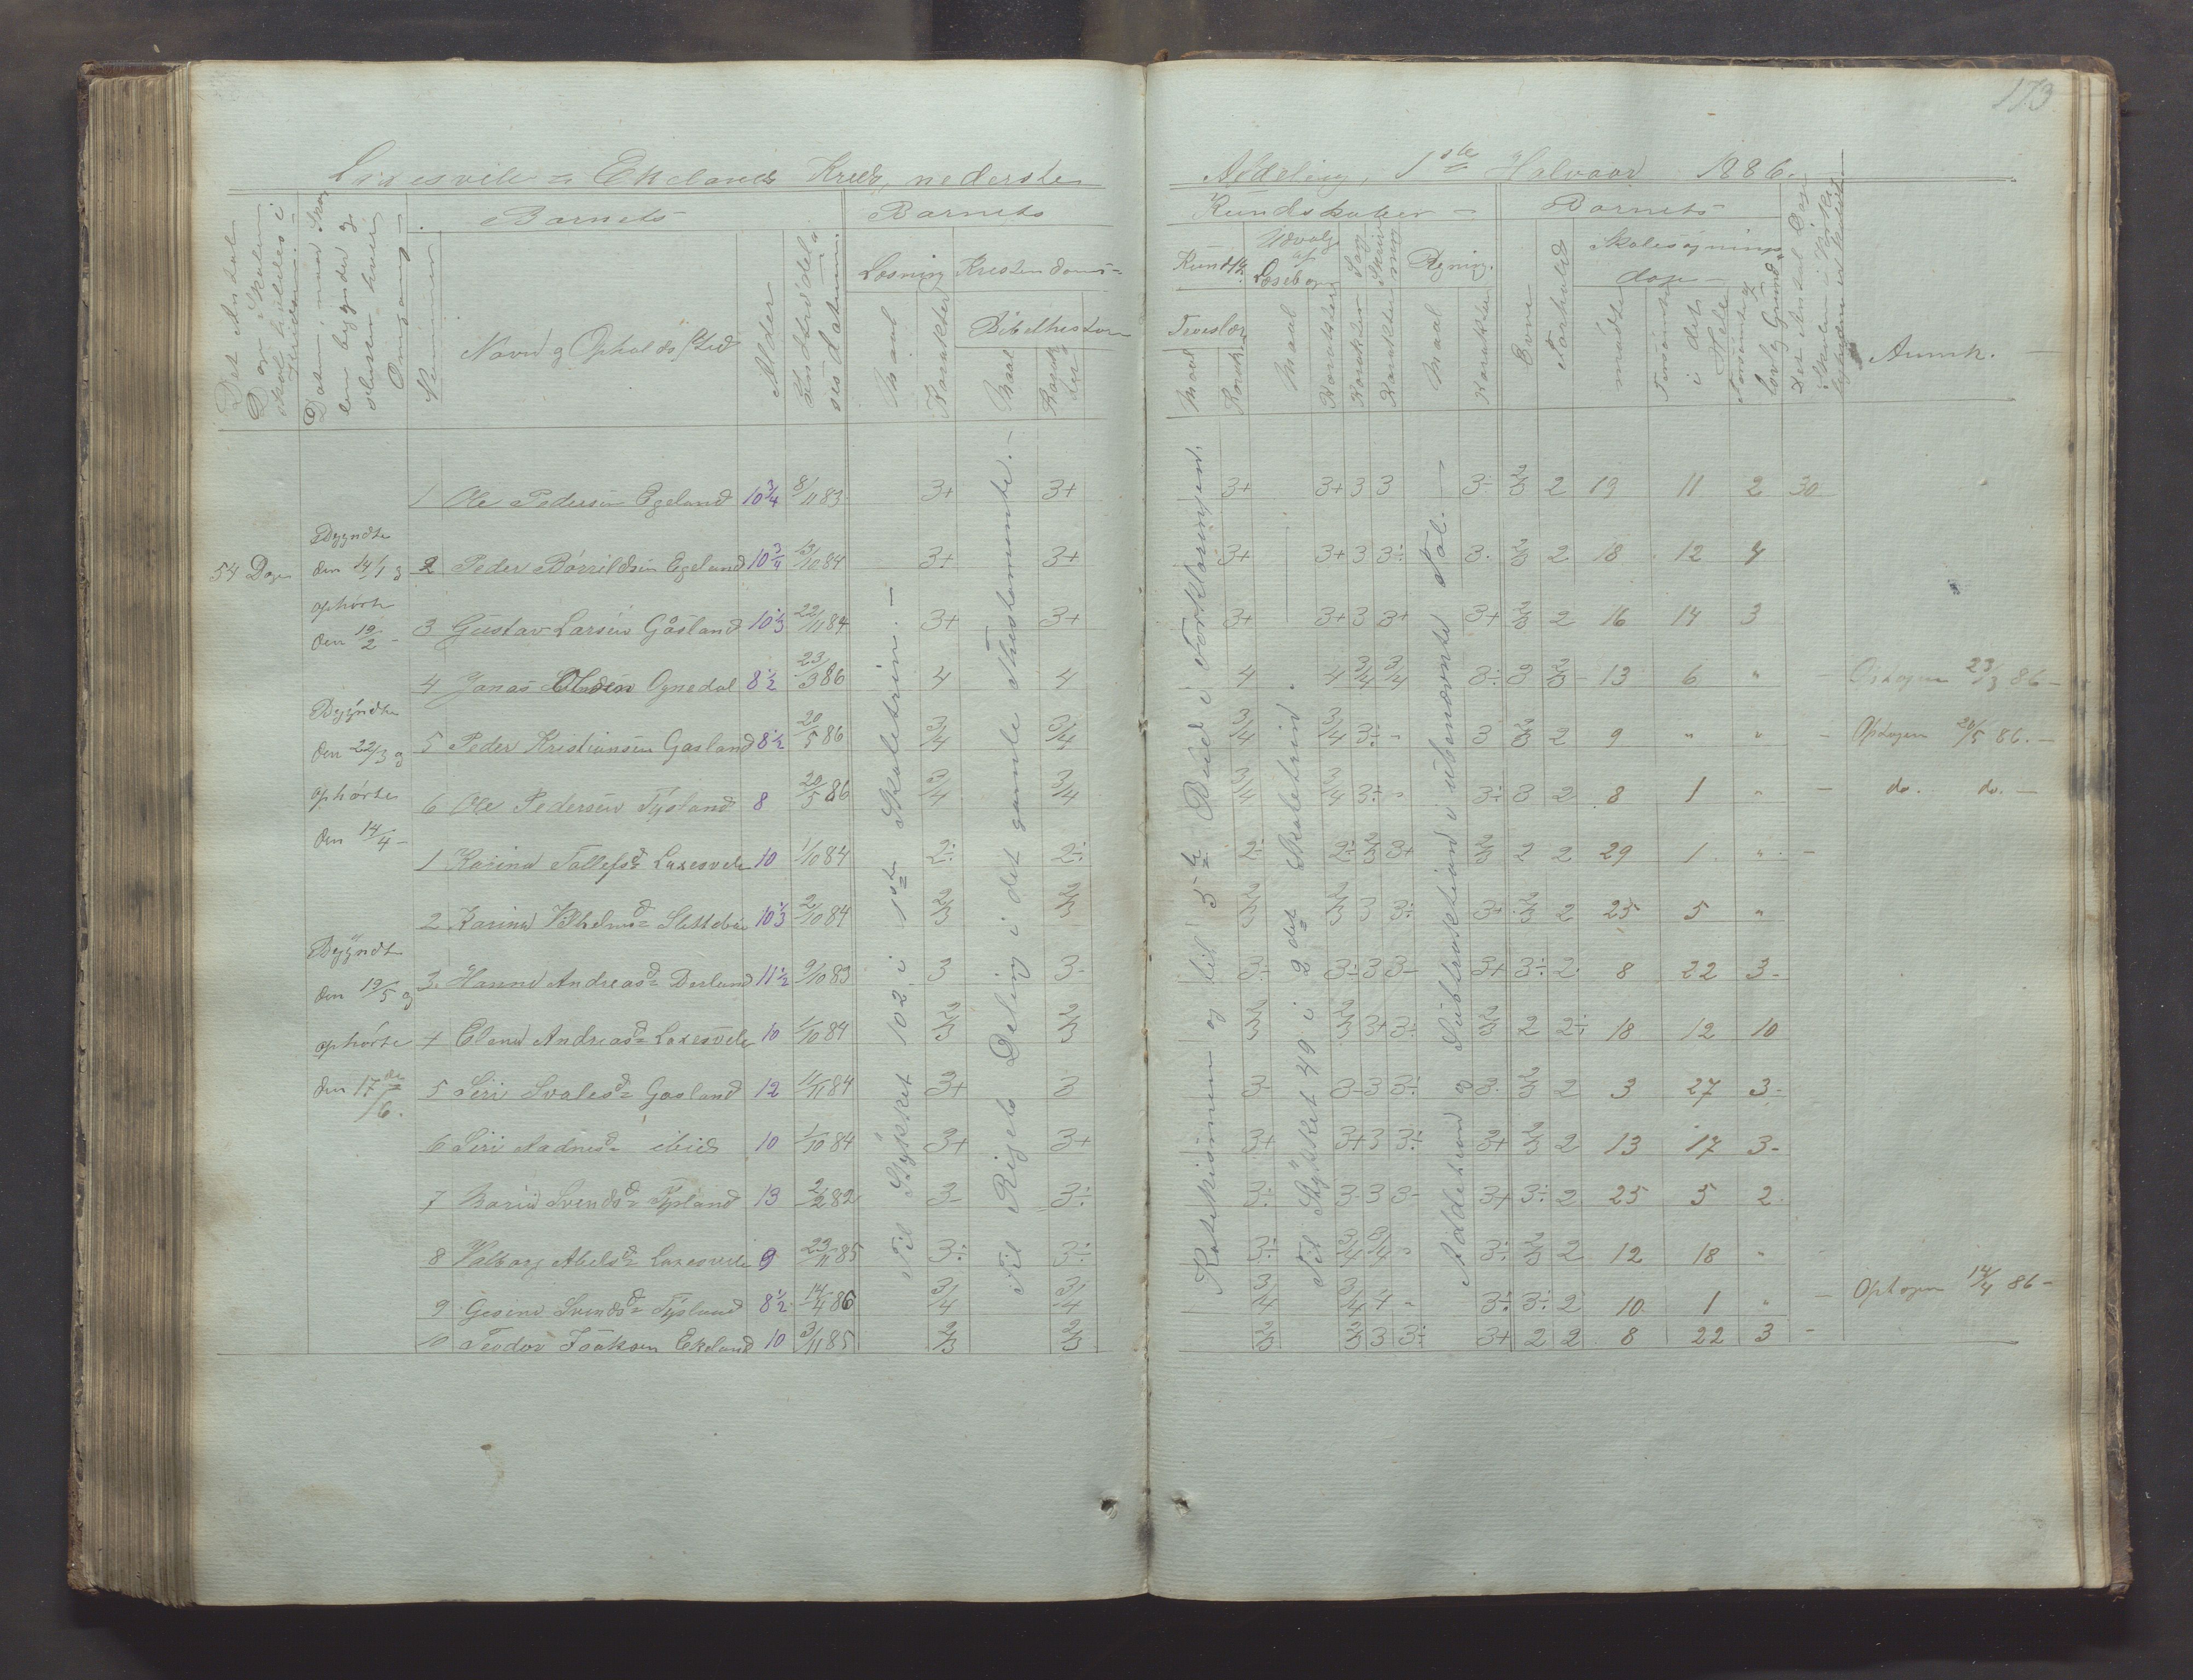 173
Ekelands Kreds, nederste Afdeling, 1ste Halvaar 1886.
Det Antal Dage Skolen skal holdes i Kredsen
Datum, naar Skolen begynder og slutter hver Omgang
Barnets
Nummer
Navn og Opholdssted
Alder
Indtrædelses Datum
Barnets Kundskaber
Læsning
Maal
Karakter
Kristendoms-
Bibelhistorie
Maal
Karakter
Troeslære
Maal
Karakter
Udvalg af Læsebogen
Maal
Karakter
Sang
Karakter
Skrivning
Karakter
Regning
Maal
Karakter
Barnets
Evne
Forhold
Skolesøgningsdage
mødte
forsømte i det Hele
forsømte af lovlig Grund
Det Antal Dage Skolen i Virkeligheden er holdt
Anmk.
54 Dage
Begyndte den 14/1 og ophørte den 19/2
Begyndte den 22/3 og ophørte den 14/4
Begyndte den 19/5 og ophørte den 17de/6.
Til Stykket 102 i 1ste Skoletrin.
Til Rigets Deling i det gamle Thestamente.
Katekismen og til 5te Bud i Forklaringen.
Til Stykket 49 i 2det Skoletrin
Addektion og Subtraktion i ubenævnte Tal.
1 Ole Pedersen Egeland 10 3/4 8/11 83 3+ 3+ 3+ 3+ 3 3 3÷ 2/3 2 19 11 2 30
2 Peder Børrildsen Egeland 10 3/4 13/10 84 3+ 3+ 3+ 3+ 3 3÷ 3. 2/3 2 18 12 4
3 Gustav Larsen Gåsland 10 1/3 22/11 84 3+ 3+ 3+ 3+ 3 3+ 3+ 2/3 2 16 14 3
4 Jonas Olsen Ognedal 8 1/2 23/3 86 4 4 4 4 3/4 3/4 3÷ 3 2/3 13 6 " Optagen 23/3 86
5 Peder Kristiansen Gasland 8 1/2 20/5 86 3/4 3/4 3/4 3/4 3÷ " 3 2/3 2 9 " " Optagen 20/5 86.
6 Ole Pedersen Tysland 8 20/5 86 3/4 3/4 3/4 3/4 3÷ " 3÷ 3 2 8 1 " do. do.
1 Karina Tallefsd Laxesvele 10 1/10 84 2÷ 2÷ 2÷ 2÷ 2/3 3+ 2/3 2 2 29 1 "
2 Karina Vilhelmsd Slettebø 10 1/3 2/10 84 2/3 2/3 2/3 2/3 3 3÷ 3+ 2/3 2 25 5 "
3 Hanna Andreasd 11 1/2 9/10 83 3 3- 3÷ 3÷ 3 3- 3+ 3÷ 2 8 22 3
4 Elena Andreasd Laxesvele 10 1/10 84 2/3 2/3 2/3 2/3 3+ 3÷ 2/3 2 2÷ 18 12 10
5 Siri Svalesd Gasland 12 11/11 84 3+ 3 3- 3- 3 3÷ 3. 2/3 2 3 27 3
6 Siri Aadnesd ibid 10 1/10 84 3+ 3+ 3+ 3+ 3 3÷ 3+ 2/3 2 13 17 3
7 Maria Svendsd Tysland 13 2/2 82 3- 3÷ 3÷ 3- 3 3- 3+ 3÷ 2 25 5 2
8 Valborg Abelsd Laxesvele 9 23/11 85 3÷ 3÷ 3÷ 3/4 3/4 " 3÷ 2/3 2 12 18 "
9 Gesine Svendsd Tysland 8 1/2 14/4 86 3/4 3/4 3/4 3/4 4 " 3÷ 3÷ 2 10 1 " Optagen 14/4 86
10 Teodor Isaksen Ekeland 10 3/11 85 2/3 2/3 2/3 2/3 3 3÷ 3+ 2 2 8 22 3